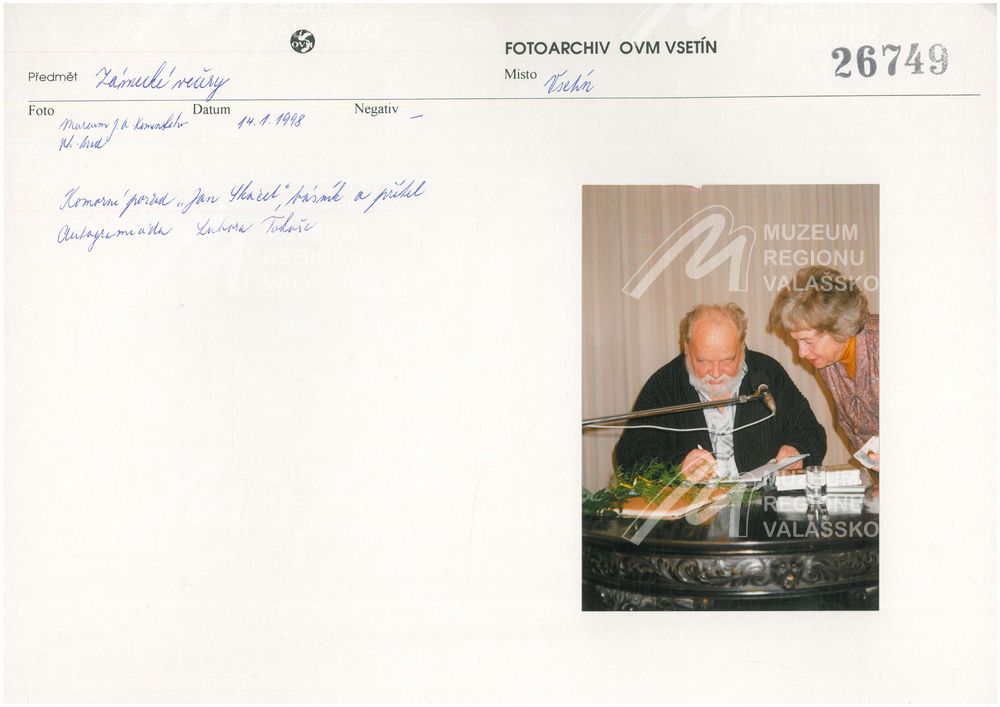 OVM
FOTOARCHIV OVM VSETÍN
26749
Předmět Zámecké večery
Místo Vsetín
Foto Museum J. A. Komenského
Uh. Brod
Datum 14.1.1998
Negativ –
Komorní pořad „Jan Skácel", básník a přítel
Autogramiáda Lubora Tokoše
MUZEUM
REGIONU
VALAŠSKO
MUZEUM
REGIONU
VALAŠSKO